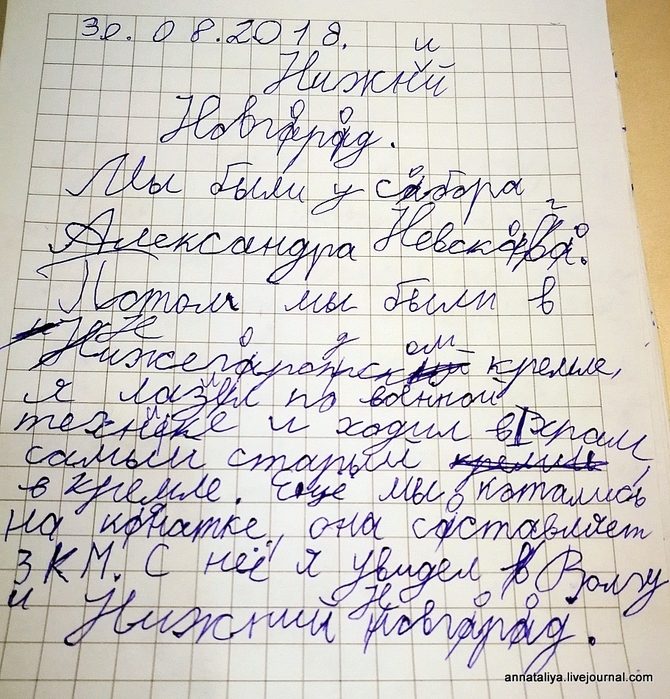 30. 08.2018.
Нижний
Новгород.
Мы были у собора
Александра Невского.
Потом мы были в
Нижегородском кремле,
я лазил по военной
технике и ходил в храм
самый старый
в кремле. Ещё мы катались
на канатке, она составляет
3 КМ. С неё я увидел Волгу
и Нижний Новгород.
annataliya.livejournal.com